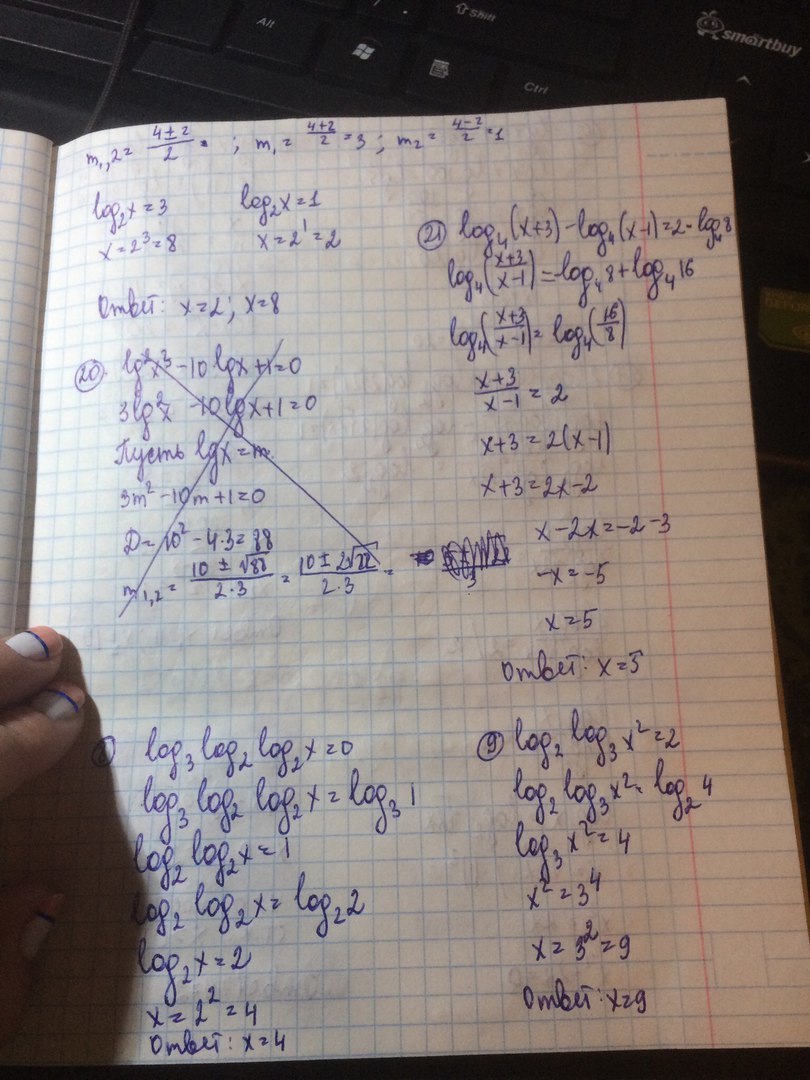 Alt
Shift
Ctrl
smartbuy
m₁,₂ = (4±2)/2 ; m₁ = (4+2)/2 = 3 ; m₂ = (4-2)/2 = 1
log₂x = 3
x = 2³ = 8
log₂x = 1
x = 2¹ = 2
Ответ: x=2; x=8
20 lg²x³ - 10 lgx + 1 = 0
3lg²x - 10 lgx + 1 = 0
Пусть lgx = m
3m² - 10m + 1 = 0
D = 10² - 4·3 = 88
m₁,₂ = (10 ± √88)/(2·3) = (10 ± 2√22)/(2·3) =
21 log₄(x+3) - log₄(x-1) = 2 - log₄8
log₄((x+3)/(x-1)) = -log₄8 + log₄16
log₄((x+3)/(x-1)) = log₄(16/8)
(x+3)/(x-1) = 2
x+3 = 2(x-1)
x+3 = 2x-2
x-2x = -2-3
-x = -5
x = 5
Ответ: x=5
log₃ log₂ log₂x = 0
log₃ log₂ log₂x = log₃ 1
log₂ log₂x = 1
log₂ log₂x = log₂2
log₂x = 2
x = 2² = 4
Ответ: x=4
9 log₂ log₃ x² = 2
log₂ log₃ x² = log₂ 4
log₃ x² = 4
x² = 3⁴
x = 3² = 9
Ответ: x=9